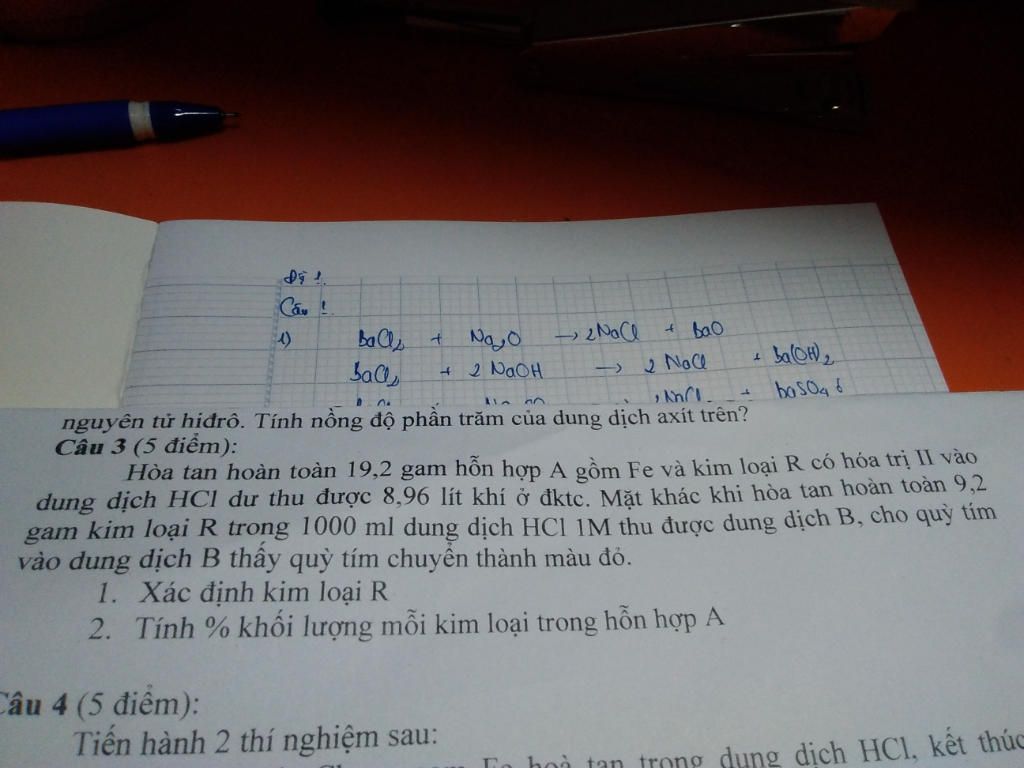 Đề 1.
Câu 1.
1) BaCl₂ + Na₂O → 2NaCl + BaO
BaCl₂ + 2 NaOH → 2 NaCl + Ba(OH)₂
+ BaSO₄ ↓
nguyên tử hiđrô. Tính nồng độ phần trăm của dung dịch axít trên?
Câu 3 (5 điểm):
Hòa tan hoàn toàn 19,2 gam hỗn hợp A gồm Fe và kim loại R có hóa trị II vào
dung dịch HCl dư thu được 8,96 lít khí ở đktc. Mặt khác khi hòa tan hoàn toàn 9,2
gam kim loại R trong 1000 ml dung dịch HCl 1M thu được dung dịch B, cho quỳ tím
vào dung dịch B thấy quỳ tím chuyển thành màu đỏ.
1. Xác định kim loại R
2. Tính % khối lượng mỗi kim loại trong hỗn hợp A
Câu 4 (5 điểm):
Tiến hành 2 thí nghiệm sau:
Fe hoà tan trong dung dịch HCl, kết thúc